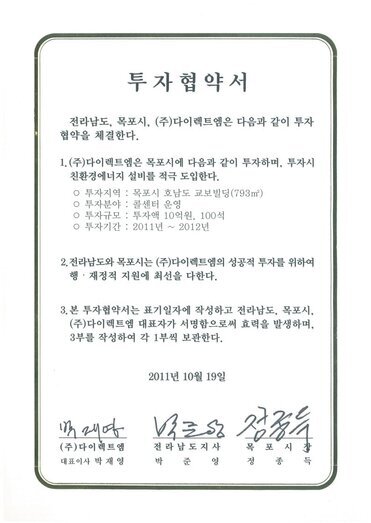 투자협약서
전라남도, 목포시, (주)다이렉트엠은 다음과 같이 투자
협약을 체결한다.
1.(주)다이렉트엠은 목포시에 다음과 같이 투자하며, 투자시
친환경에너지 설비를 적극 도입한다.
○ 투자지역 : 목포시 호남도 교보빌딩(793㎡)
○ 투자분야 : 콜센터 운영
○ 투자규모 : 투자액 10억원, 100석
○ 투자기간 : 2011년 ~ 2012년
2.전라남도와 목포시는 (주)다이렉트엠의 성공적 투자를 위하여
행·재정적 지원에 최선을 다한다.
3.본 투자협약서는 표기일자에 작성하고 전라남도, 목포시,
(주)다이렉트엠 대표자가 서명함으로써 효력을 발생하며,
3부를 작성하여 각 1부씩 보관한다.
2011년 10월 19일
박재영 박준영 정종득
(주)다이렉트엠 전라남도지사 목포시장
대표이사 박재영 박준영 정종득